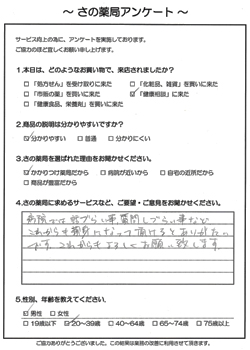 ～ さの薬局アンケート ～
サービス向上の為に、アンケートを実施しております。
ご協力のほど宜しくお願い申し上げます。
1.本日は、どのようなお買い物で、来店されましたか?
□「処方せん」を受け取りに来た □「化粧品、雑貨」を買いに来た
□「市販の薬」を買いに来た ☑「健康相談」に来た
□「健康食品、栄養剤」を買いに来た
2.商品の説明は分かりやすいですか?
☑分かりやすい □普通 □分かりにくい
3.さの薬局を選ばれた理由をお聞かせください。
☑かかりつけ薬局だから □病院が近いから □自宅の近所だから
□商品が豊富だから
4.さの薬局に求めるサービスなど、ご要望・ご意見をお聞かせください。
病院では話づらい事、質問しづらい事など
これからも親身になって頂けるとありがたい
です。これからもよろしくお願い致します
5.性別、年齢を教えてください。
☑男性 □女性
□19歳以下 ☑20～39歳 □40～64歳 □65～74歳 □75歳以上
ご協力ありがとうございました。この結果は業務の改善に利用させて頂きます。